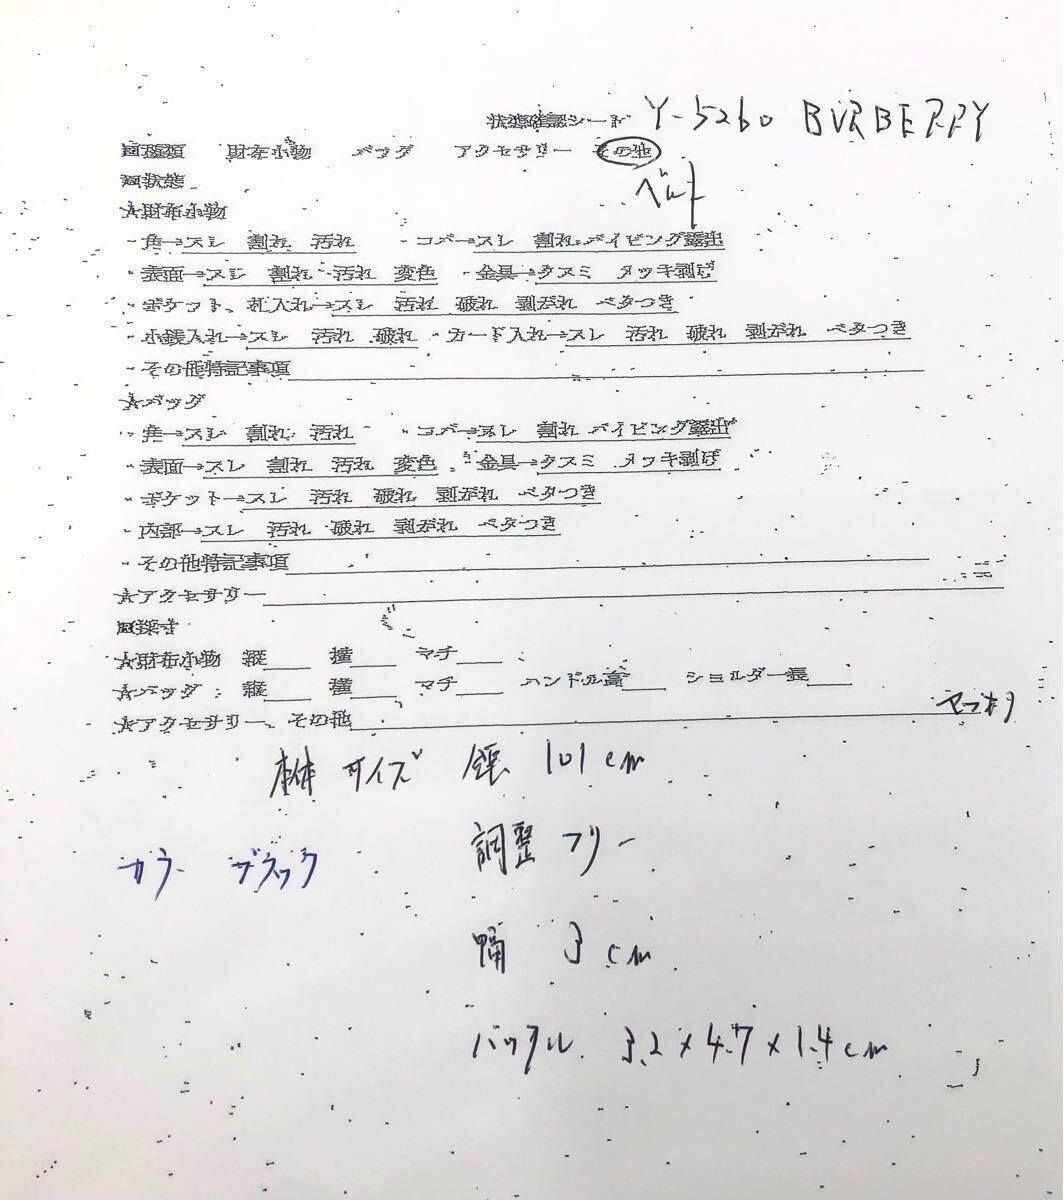 状態確認シート Y-5260 BURBERRY
■種類 財布小物 バッグ アクセサリー その他
ベルト
■状態
★財布小物
・角→スレ 割れ 汚れ ・コバ→スレ 割れ パイピング露出
・表面→スレ 割れ 汚れ 変色 ・金具→クスミ メッキ剥げ
・ポケット、札入れ→スレ 汚れ 破れ 剥がれ ベタつき
・小銭入れ→スレ 汚れ 破れ ・カード入れ→スレ 汚れ 破れ 剥がれ ベタつき
・その他特記事項
★バッグ
・角→スレ 割れ 汚れ ・コバ→スレ 割れ パイピング露出
・表面→スレ 割れ 汚れ 変色 ・金具→クスミ メッキ剥げ
・ポケット→スレ 汚れ 破れ 剥がれ ベタつき
・内部→スレ 汚れ 破れ 剥がれ ベタつき
・その他特記事項
★アクセサリー
■採寸
★財布小物 縦 横 マチ
★バッグ : 縦 横 マチ ハンドル高 ショルダー長
★アクセサリー、その他
本体サイズ 全長 101cm
調整 フリー
カラー ブラック
幅 3cm
バックル 3.2×4.7×1.4cm